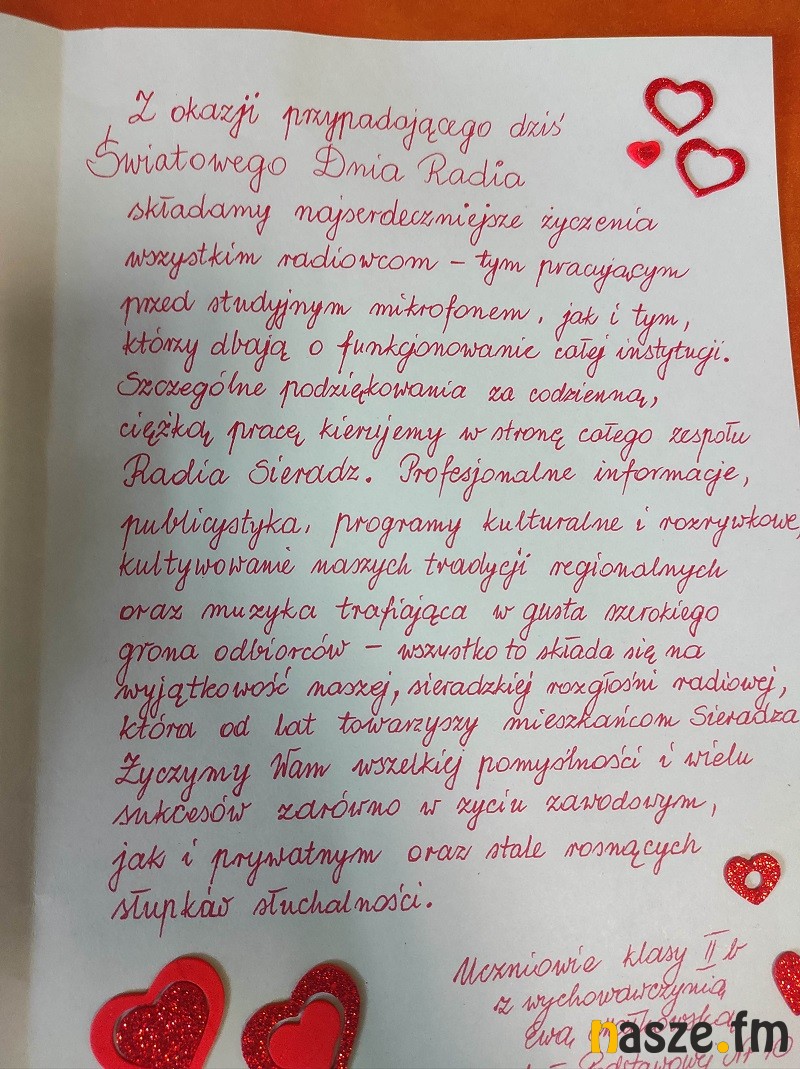 Z okazji przypadającego dziś
Światowego Dnia Radia
składamy najserdeczniejsze życzenia
wszystkim radiowcom – tym pracującym
przed studyjnym mikrofonem, jak i tym,
którzy dbają o funkcjonowanie całej instytucji.
Szczególne podziękowania za codzienną,
ciężką pracę kierujemy w stronę całego zespołu
Radia Sieradz. Profesjonalne informacje,
publicystyka, programy kulturalne i rozrywkowe,
kultywowanie naszych tradycji regionalnych
oraz muzyka trafiająca w gusta szerokiego
grona odbiorców – wszystko to składa się na
wyjątkowość naszej, sieradzkiej rozgłośni radiowej,
która od lat towarzyszy mieszkańcom Sieradza
Życzymy Wam wszelkiej pomyślności i wielu
sukcesów zarówno w życiu zawodowym,
jak i prywatnym oraz stale rosnących
słupków słuchalności.
Uczniowie klasy II b
z wychowawczynią
Ewą
Podstawowej nr 10
nasze.fm